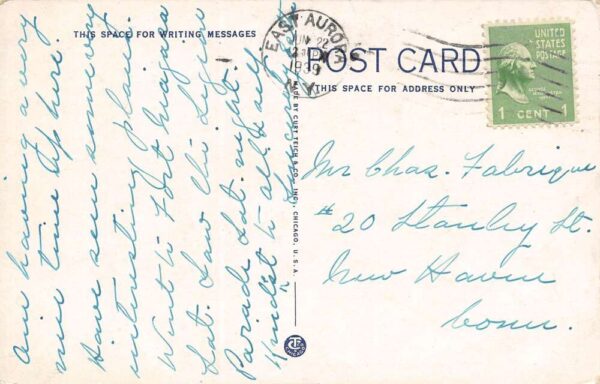 THIS SPACE FOR WRITING MESSAGES
POST CARD
THIS SPACE FOR ADDRESS ONLY
EAST AURORA
JUN 22
1939
N.Y.
UNITED
STATES
POSTAGE
1 CENT 1
MADE BY CURT TEICH & CO., INC., CHICAGO, U.S.A.
Am having a very
nice time up here.
Have seen so many
interesting places.
Went to Fort Niagara
Sat. Saw the Legion
Parade Sat. night.
Kindst to all. & self
Mr Chas. Fabrique
#20 Stanley St.
New Haven
Conn.